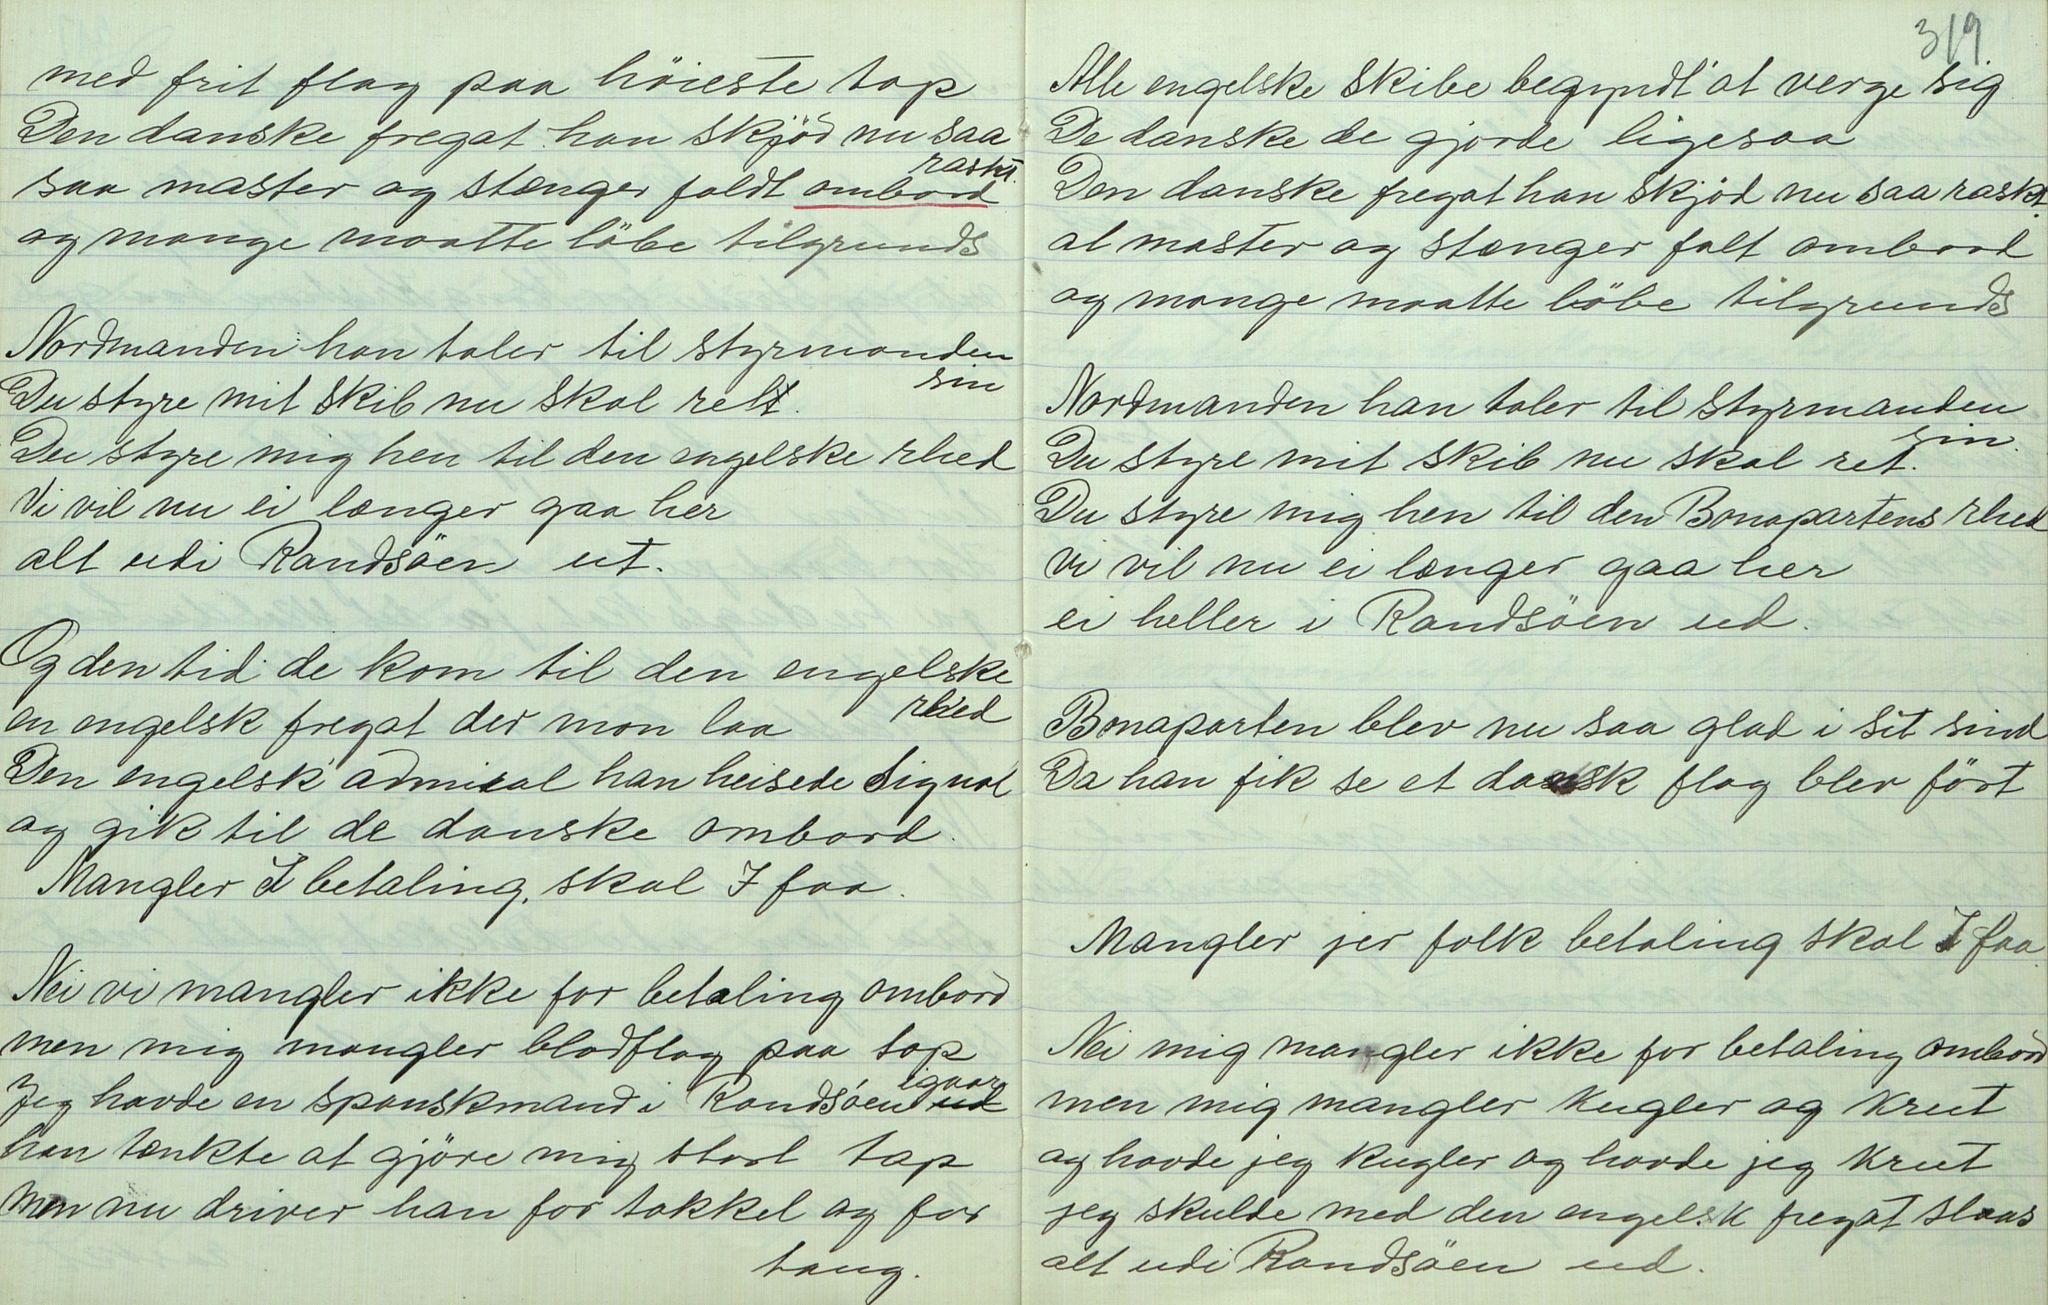 med frit flag paa höieste top
Den danske fregat han skjöd nu saa
raskt.
saa master og stænger faldt ombord
og mange maatte löbe tilgrunds
Nordmanden han taler til styrmanden
sin
Du styre mit skib nu skal ret.
Du styre mig hen til den engelske rhed
Vi vil nu ei længer gaa her
alt udi Randsöen ut.
Og den tid de kom til den engelske
rhed
en engelsk fregat der mon laa
Den engelsk admiral han heisede signal
og gik til de danske ombord.
Mangler I betaling, skal I faa.
Nei vi mangler ikke for betaling ombord
men mig mangler blodflag paa top
Jeg havde en spanskmand i Randsöen ud
igaar
han tænkte at gjöre mig stort tap
Men nu driver han for takkel og for
taug.
319
Alle engelske skibe begyndt' at verge sig
De danske de gjorde ligesaa
Den danske fregat han skjöd nu saa raskt.
at master og stænger falt ombord
og mange maatte löbe tilgrunds
Nordmanden han taler til styrmanden
sin.
Du styre mit skib nu skal ret.
Du styre mig hen til den Bonapartens rhed
vi vil nu ei længer gaa her
ei heller i Randsöen ud.
Bonaparten blev nu saa glad i sit sind
Da han fik se et dansk flag blev fört
Mangler jer folk betaling skal I faa.
Nei mig mangler ikke for betaling ombord
men mig mangler kugler og krut
og havde jeg kugler og havde jeg krut
jeg skulde med den engelsk fregat slaas
alt udi Randsöen ud.